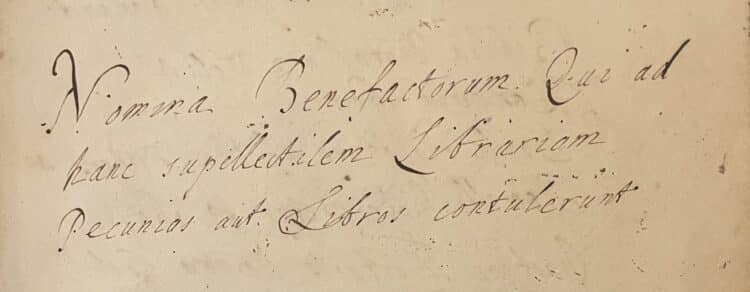 Nomina Benefactorum. Qui ad
hanc supellectilem Librariam
Pecunias aut. Libros contulerunt